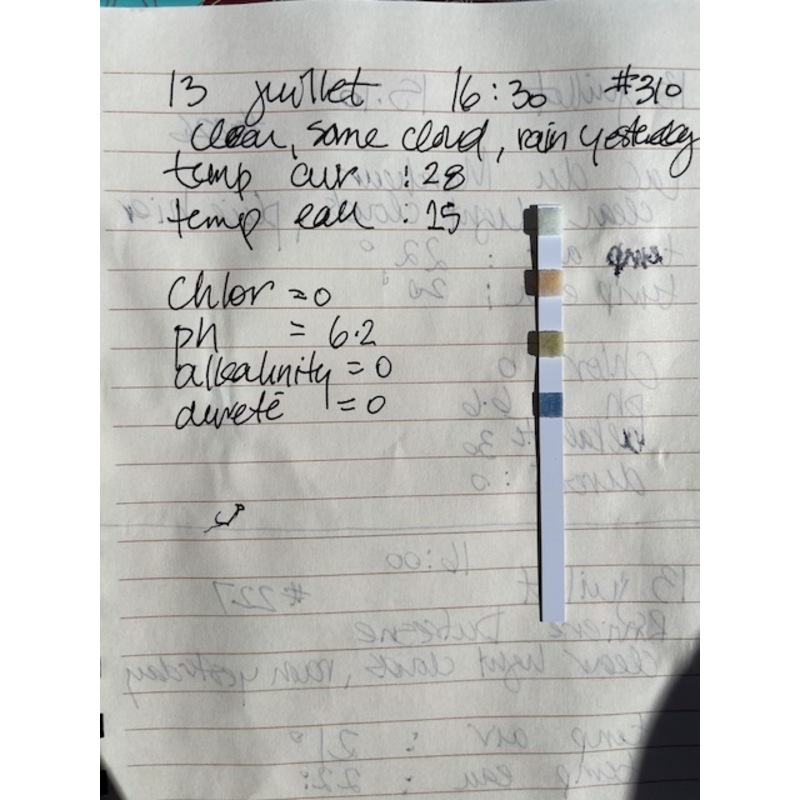 13 juillet 16:30 #310
clear, some cloud, rain yesterday
temp air : 28
temp eau : 15
Chlor = 0
ph = 6.2
alkalinity = 0
dureté = 0